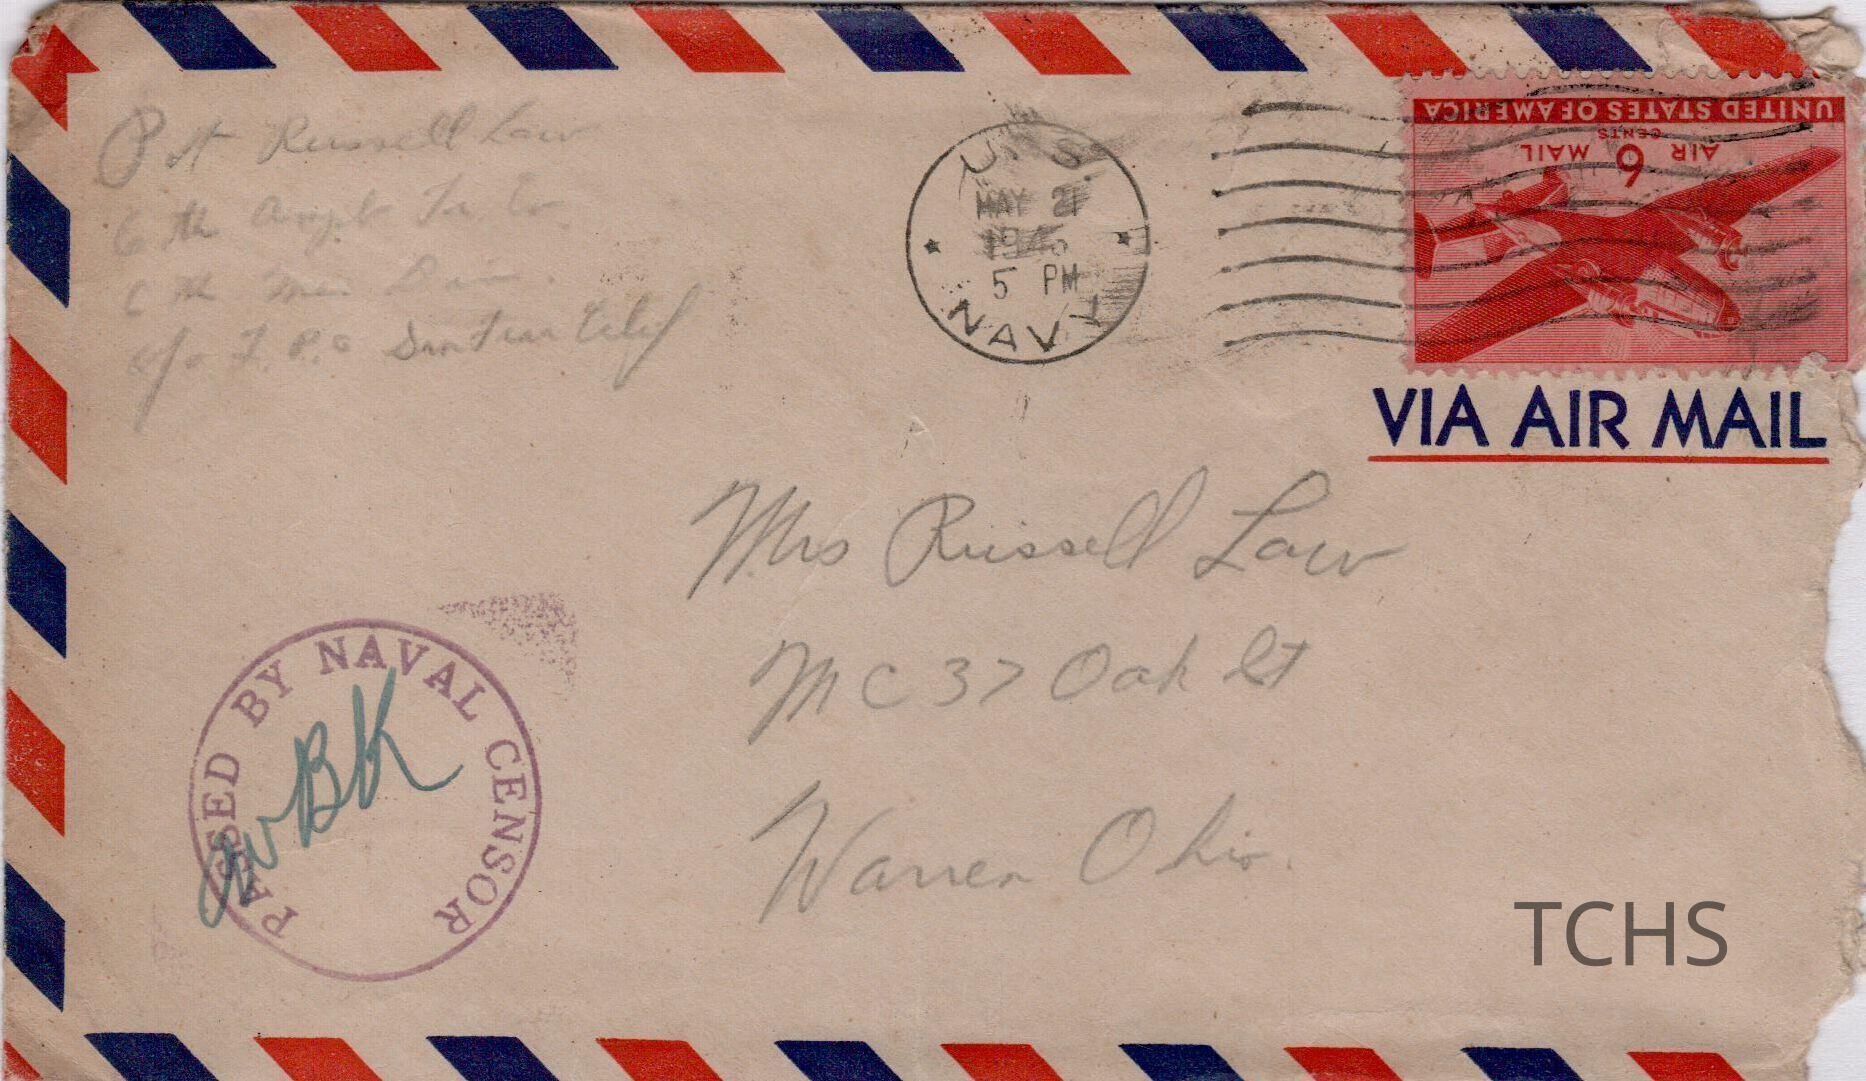 Pvt Russell Law
6 th Amph Tr Co
6 th Mar Div.
c/o F.P.O San Fran Calif
U.S.
MAY 21
1945
5 PM
NAVY
UNITED STATES OF AMERICA
CENTS
AIR 6 MAIL
VIA AIR MAIL
Mrs Russell Law
MC 37 Oak St
Warren Ohio.
PASSED BY NAVAL CENSOR
TCHS